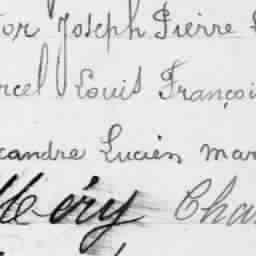 tor Joseph Pierre
rcel Louis Françoi
xandre Lucien mar
Méry Cha